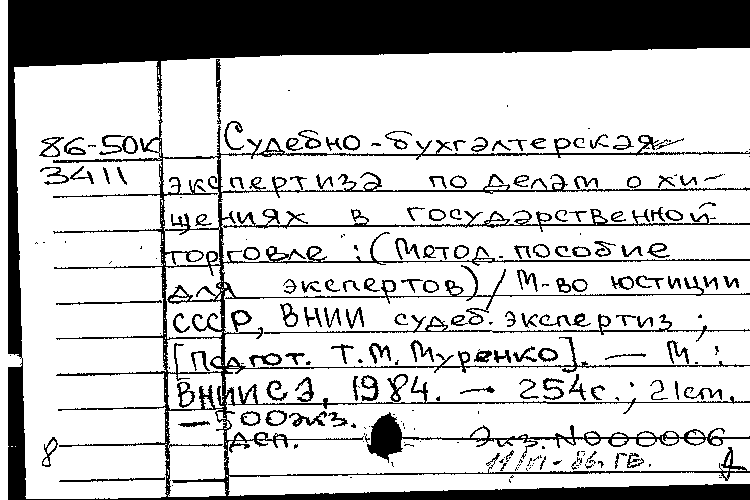 86-50К Судебно-бухгалтерская
3411 экспертиза по делам о хи-
щениях в государственной
торговле : (Метод. пособие
для экспертов) / М-во юстиции
СССР, ВНИИ судеб. экспертиз ;
[Подгот. Т.М. Муренко]. — М. :
ВНИИСЭ, 1984. — 254с. ; 21см.
— 500экз.
ДСП. Экз. N000006
8 11/VI-86. ГБ.